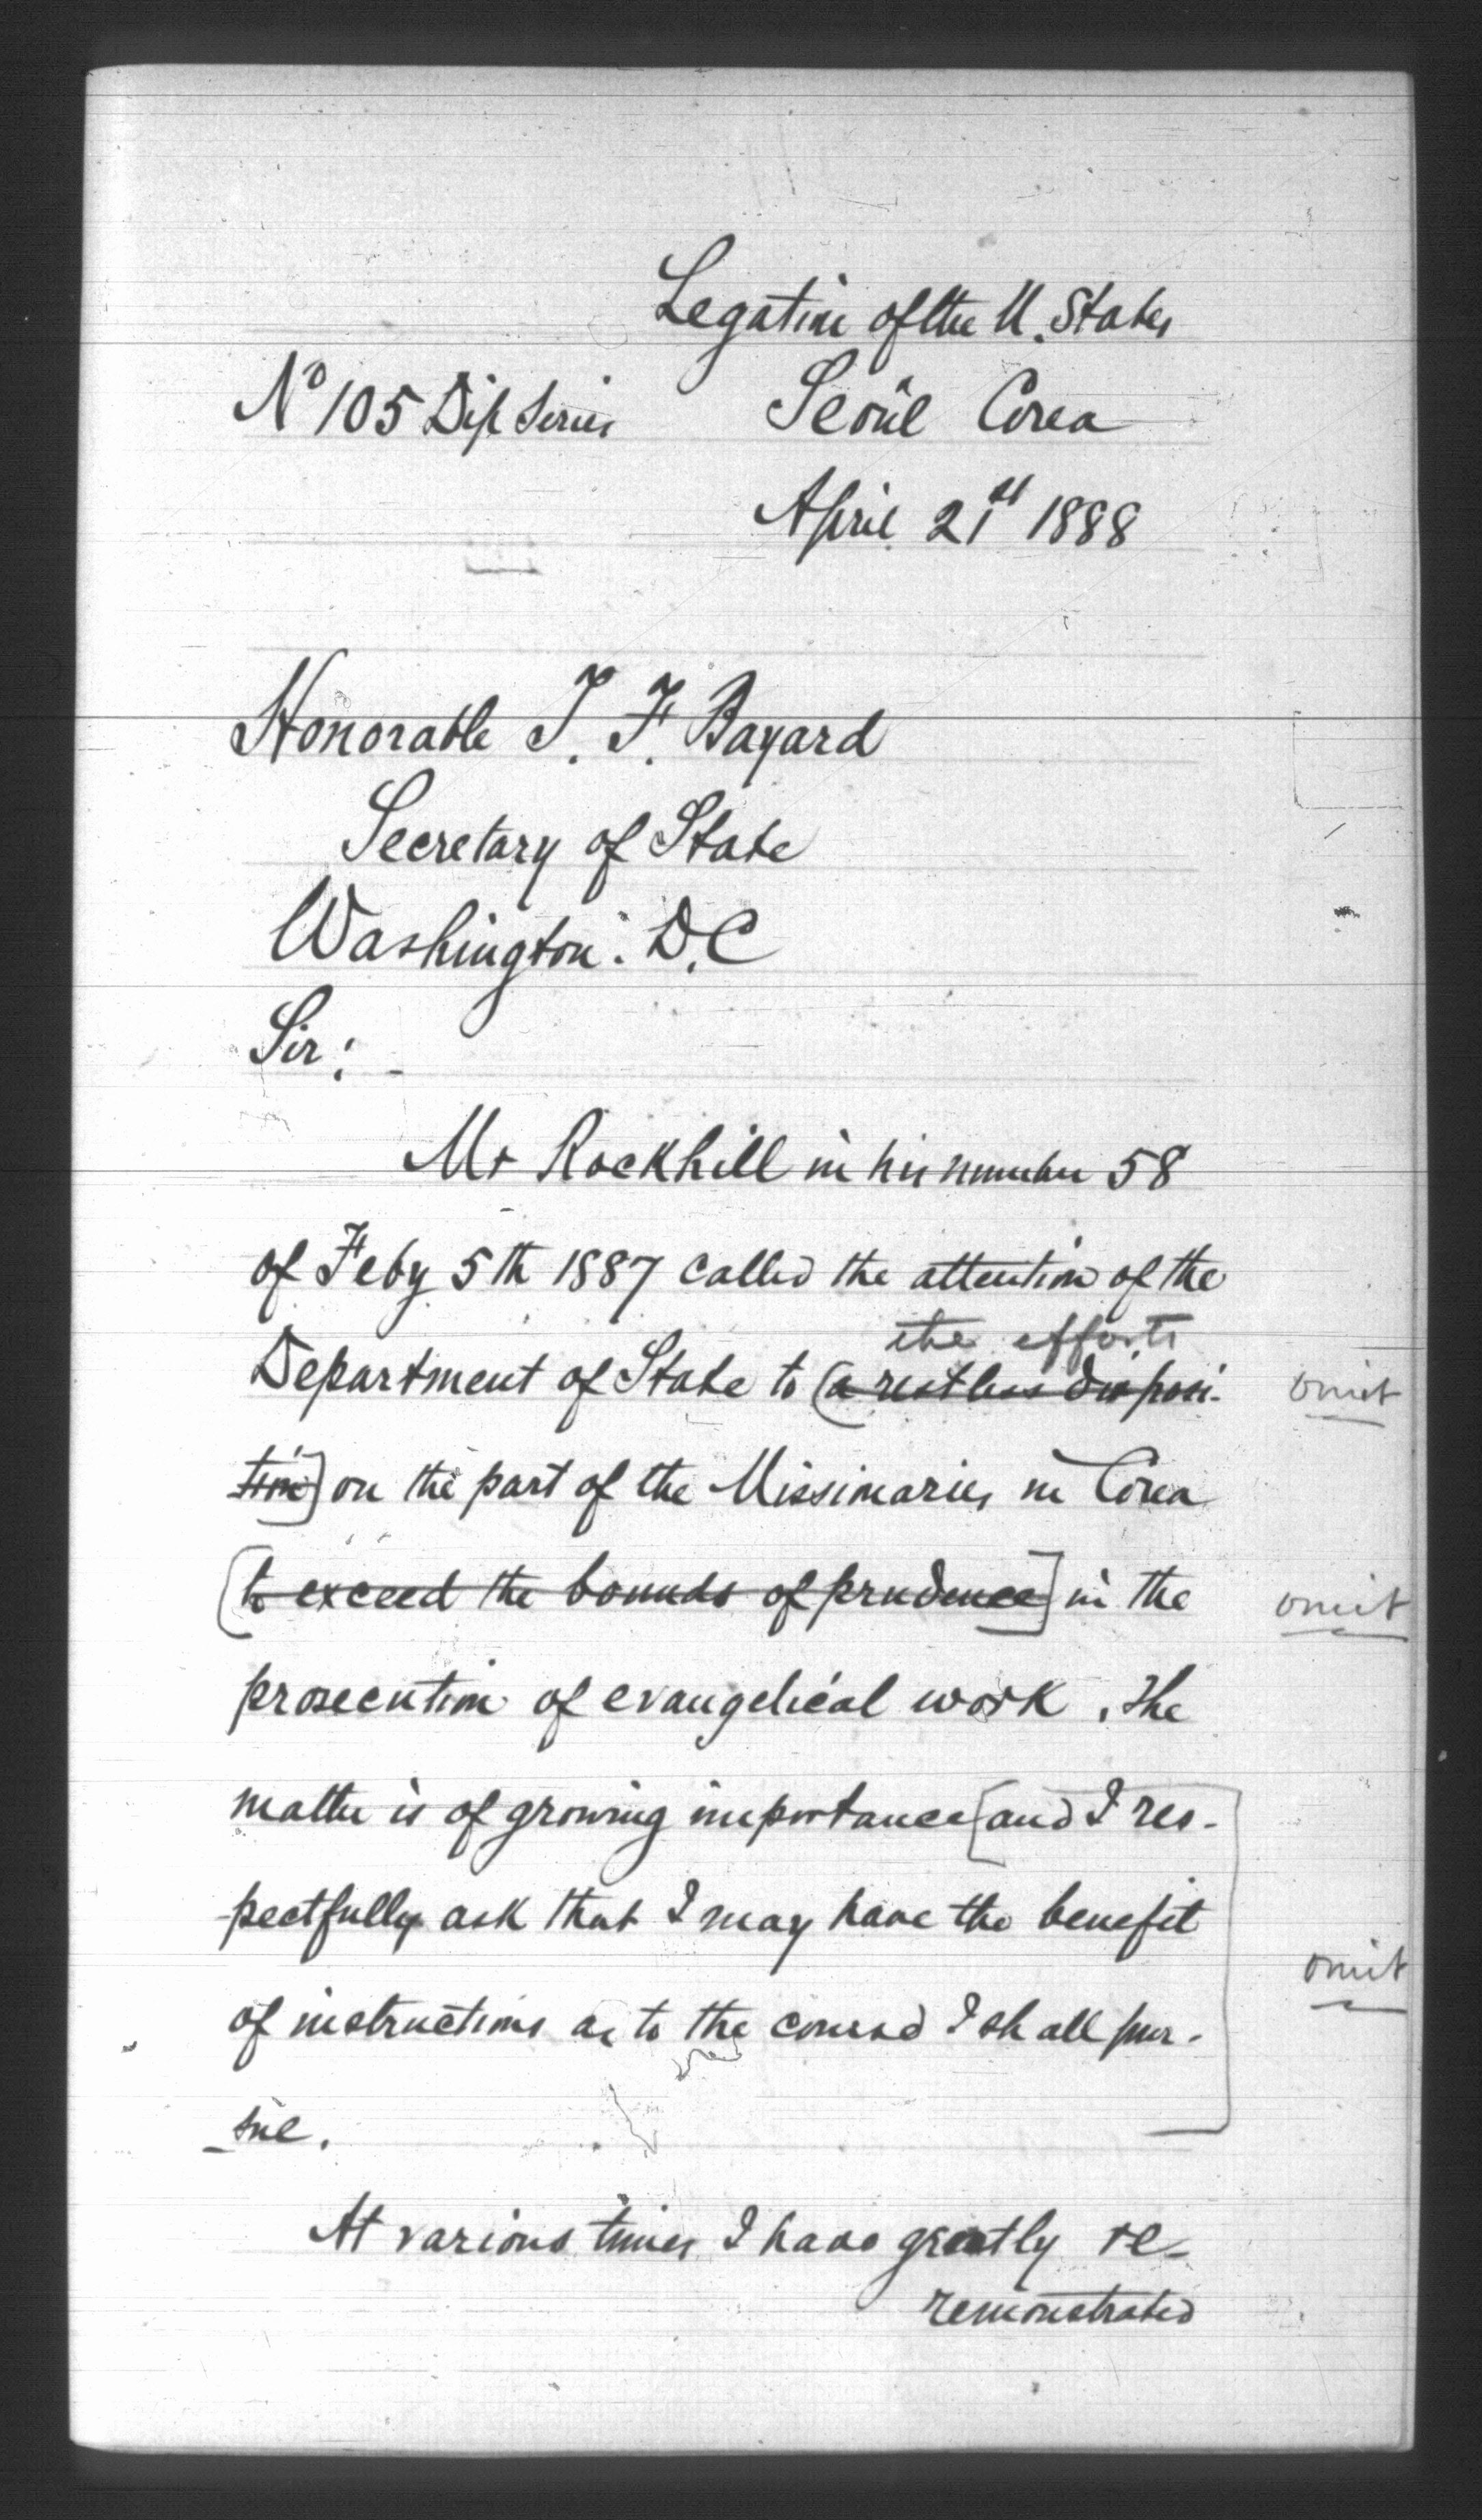 Legation of the U. States
No 105 Dip Series
Seoul Corea
April 21st 1888
Honorable T. F. Bayard
Secretary of State
Washington. D.C
Sir:-
Mr Rockhill in his number 58
of Feby 5th 1887 called the attention of the
the efforts
Department of State to (a restless disposi-
tion] on the part of the Missionaries in Corea
omit
[to exceed the bounds of prudence] in the
omit
prosecution of evangelical work. The
matter is of growing importance [and I res-
pectfully ask that I may have the benefit
omit
of instructions as to the course I shall pur-
sue.
At various times I have greatly re-
remonstrated